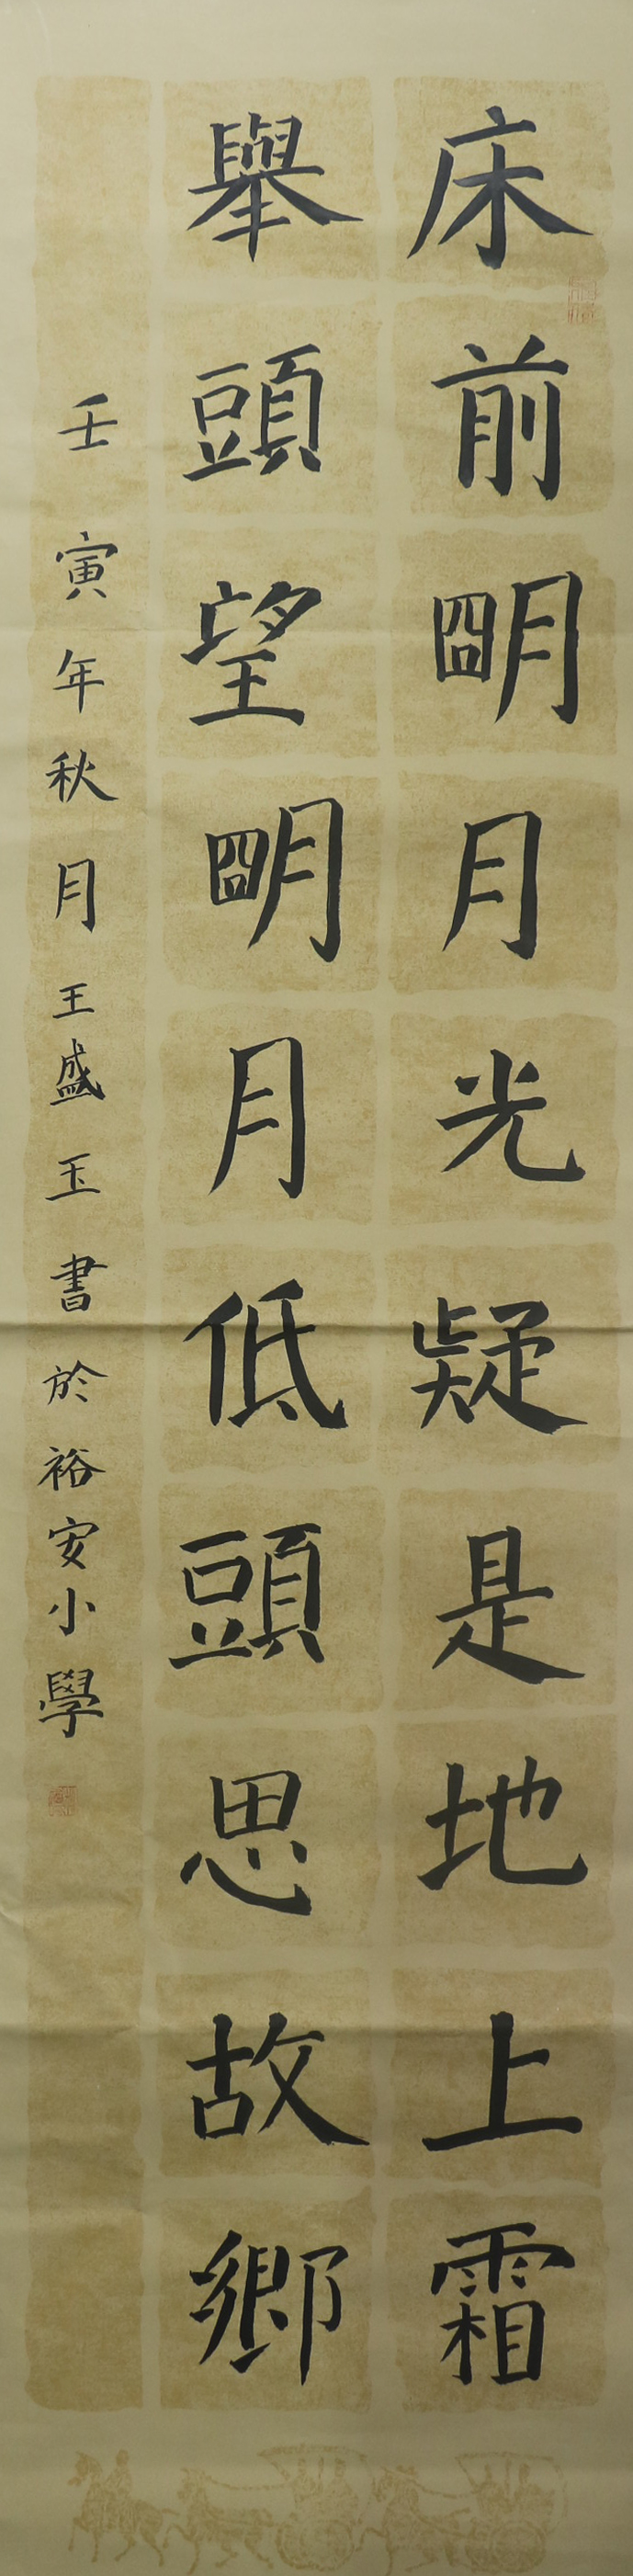 床前朙月光疑是地上霜
舉頭望朙月低頭思故鄉
壬寅年秋月王盛玉書於裕安小學